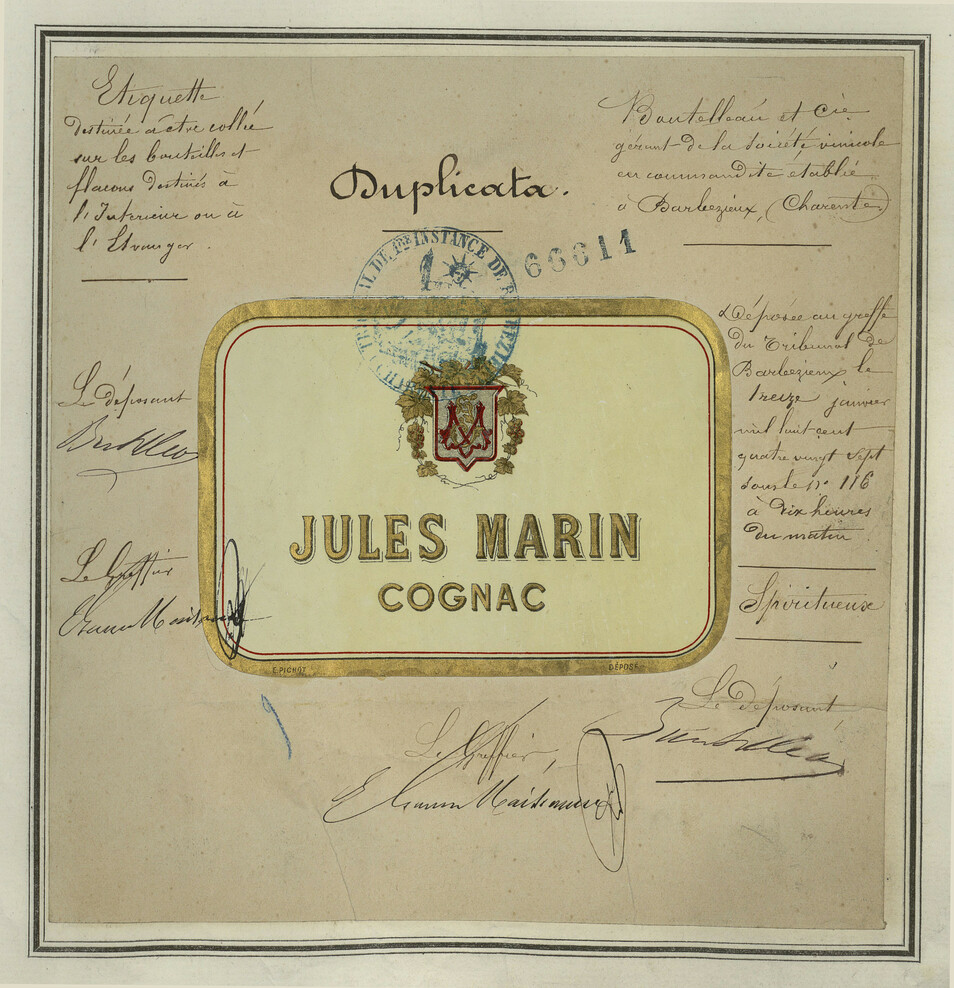 Etiquette
destinée à être collée
sur les bouteilles et
flacons destinés à
l'Intérieur ou à
l'Etranger.
Duplicata.
Boutelleau et Cie
gérant de la Société vinicole
en commandite établie
à Barbezieux, (Charente)
66611
TRIBUNAL DE 1re INSTANCE DE BARBEZIEUX
Déposée au greffe
du Tribunal de
Barbezieux le
treize janvier
mil huit cent
quatre vingt sept
sous le No 116
à dix heures
du matin
Spiritueux
Le déposant
Le Greffier
JULES MARIN
COGNAC
E. PICHOT
DÉPOSÉ
Le déposant
Le Greffier,